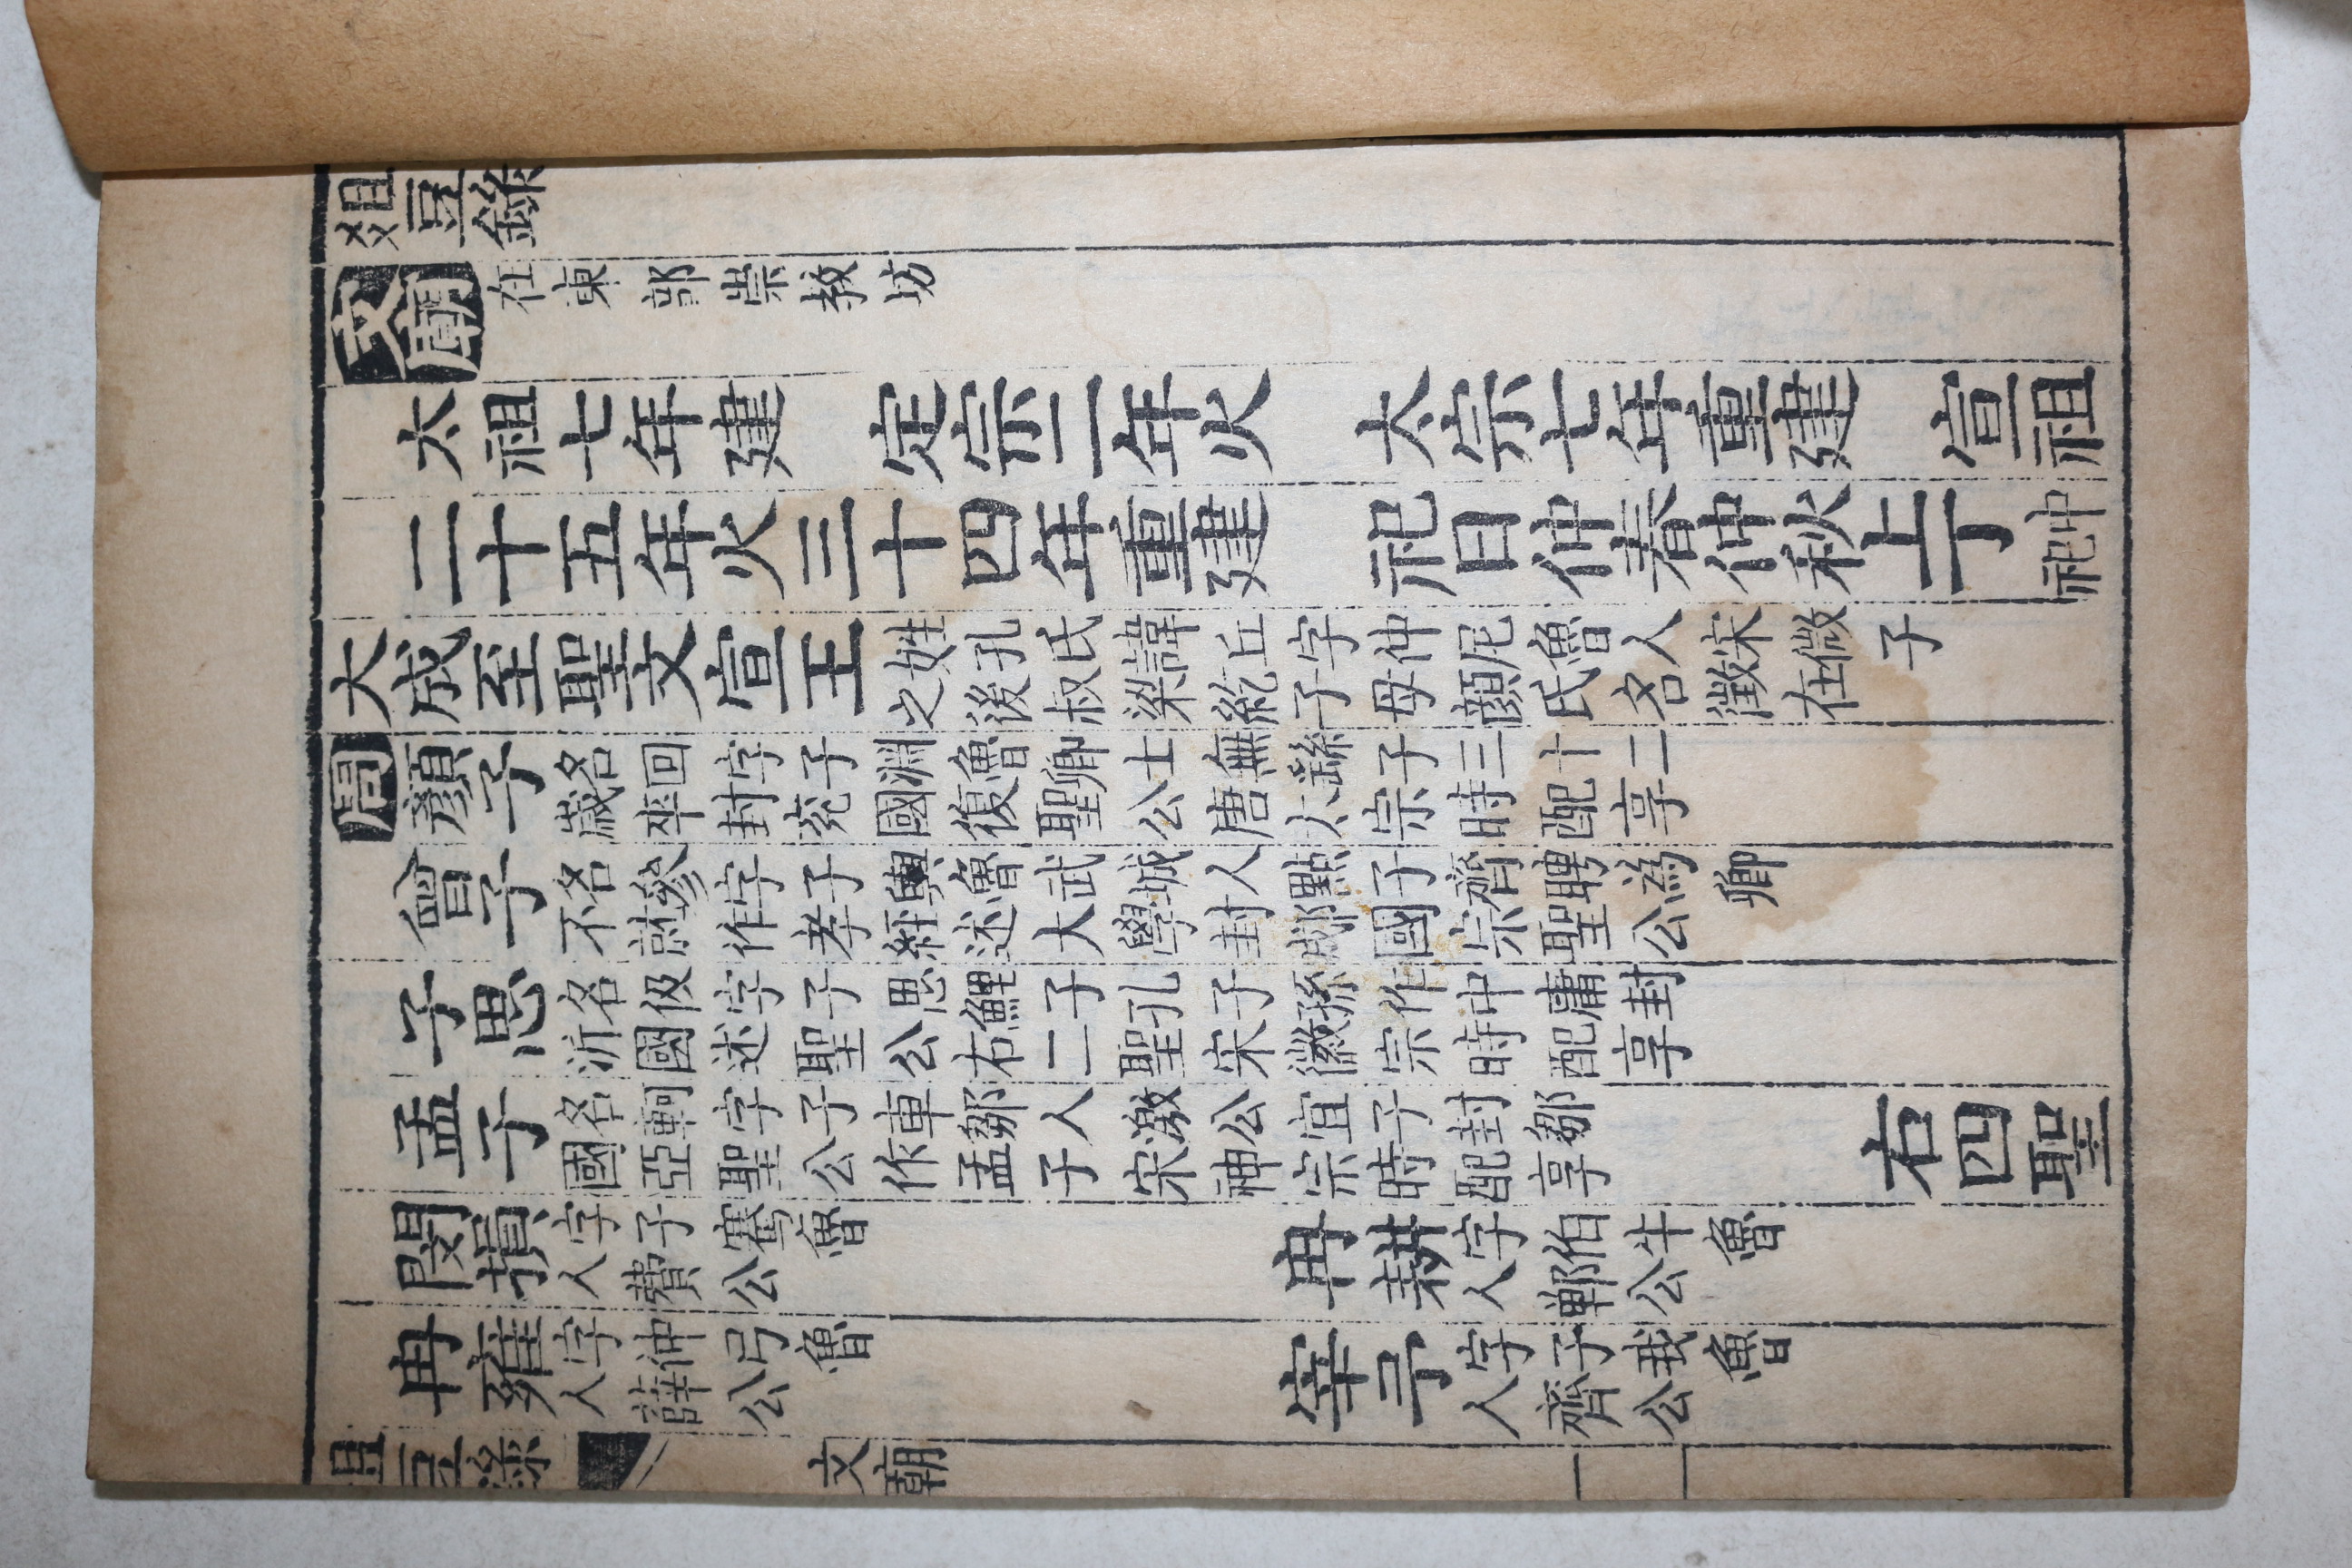 俎豆錄
文廟在東部崇教坊
太祖七年建 定宗二年火 太宗七年重建 宣祖
二十五年火三十四年重建 祀日仲春仲秋上丁中祀
大成至聖文宣王姓孔氏諱丘字仲尼魯人宋微子之後叔梁紇子母顔氏名徵在
周顏子名回字子淵魯卿士無繇子三十二歲卒封兖國復聖公唐太宗時配享
曾子名參字子輿魯武城人點子齊聘為卿不就作孝經述大學封郕國宗聖公
子思名伋字子思鯉子孔子孫作中庸封沂國述聖公右二聖宋徽宗時配享
孟子名軻字子車鄒人激公宜子封鄒國亞聖公作孟子宋神宗時配享 右四聖
閔損字子騫魯人費公 冉耕字伯牛魯人鄆公
冉雍字仲弓魯人薛公 宰予字子我魯人齊公
俎豆錄 文廟 一